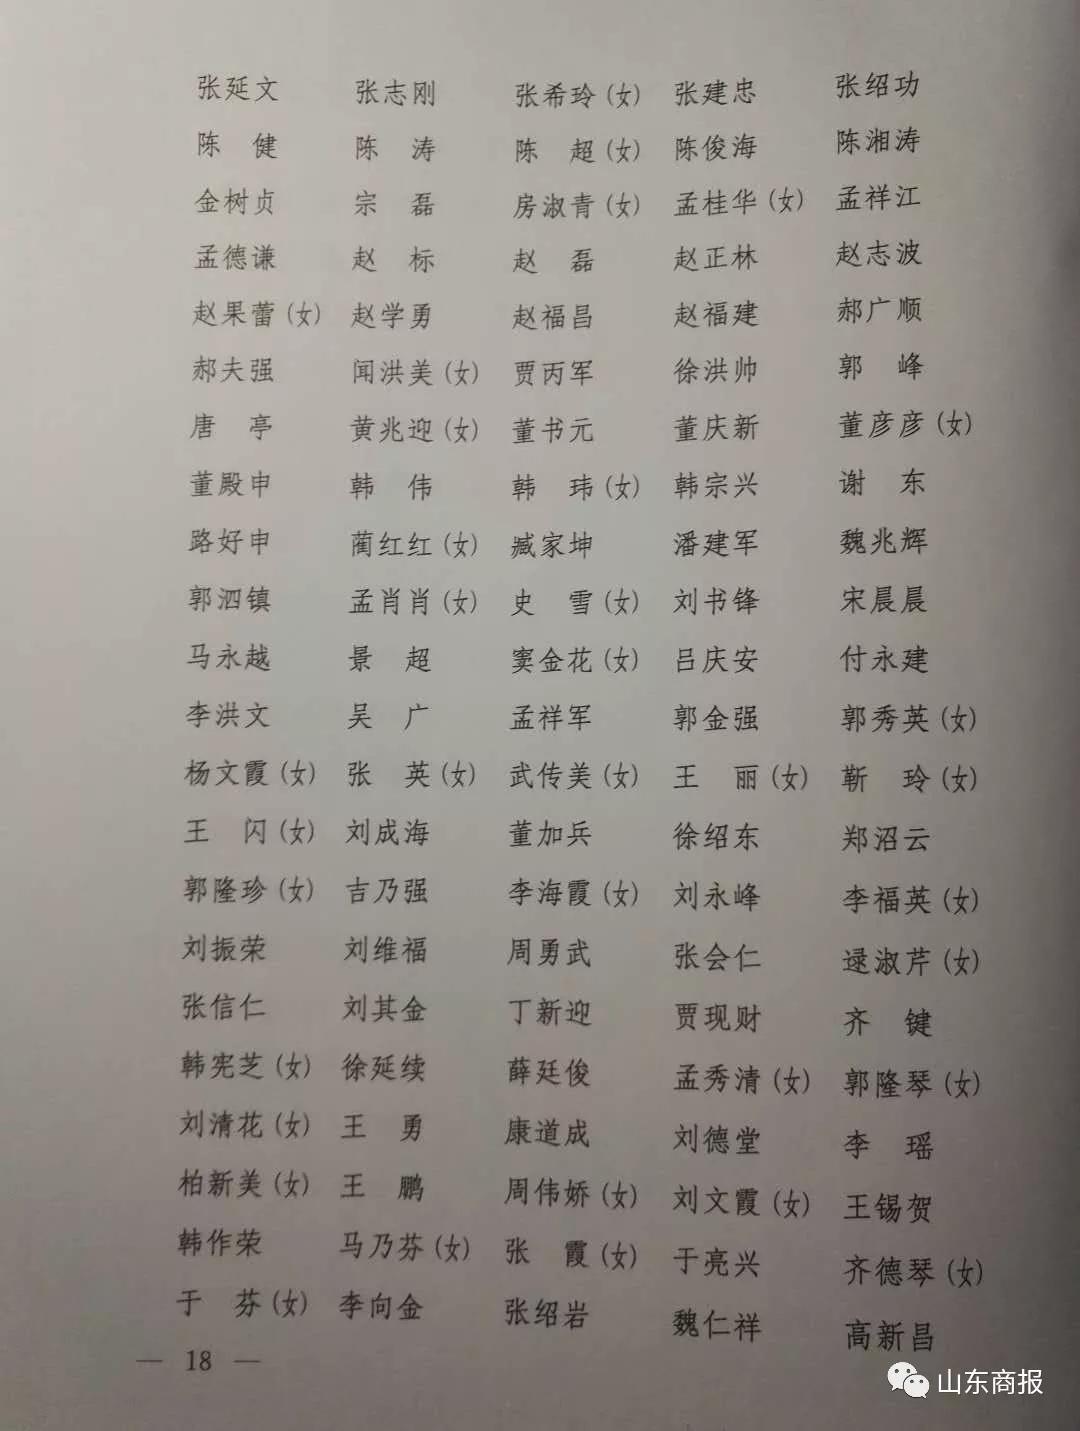 张延文 张志刚 张希玲(女) 张建忠 张绍功
陈　健 陈　涛 陈　超(女) 陈俊海 陈湘涛
金树贞 宗　磊 房淑青(女) 孟桂华(女) 孟祥江
孟德谦 赵　标 赵　磊 赵正林 赵志波
赵果蕾(女) 赵学勇 赵福昌 赵福建 郝广顺
郝夫强 闻洪美(女) 贾丙军 徐洪帅 郭　峰
唐　亭 黄兆迎(女) 董书元 董庆新 董彦彦(女)
董殿申 韩　伟 韩　玮(女) 韩宗兴 谢　东
路好申 蔺红红(女) 臧家坤 潘建军 魏兆辉
郭泗镇 孟肖肖(女) 史　雪(女) 刘书锋 宋晨晨
马永越 景　超 窦金花(女) 吕庆安 付永建
李洪文 吴　广 孟祥军 郭金强 郭秀英(女)
杨文霞(女) 张　英(女) 武传美(女) 王　丽(女) 靳　玲(女)
王　闪(女) 刘成海 董加兵 徐绍东 郑沼云
郭隆珍(女) 吉乃强 李海霞(女) 刘永峰 李福英(女)
刘振荣 刘维福 周勇武 张会仁 逯淑芹(女)
张信仁 刘其金 丁新迎 贾现财 齐　键
韩宪芝(女) 徐延续 薛廷俊 孟秀清(女) 郭隆琴(女)
刘清花(女) 王　勇 康道成 刘德堂 李　瑶
柏新美(女) 王　鹏 周伟娇(女) 刘文霞(女) 王锡贺
韩作荣 马乃芬(女) 张　霞(女) 于亮兴 齐德琴(女)
于　芬(女) 李向金 张绍岩 魏仁祥 高新昌
— 18 —
山东商报